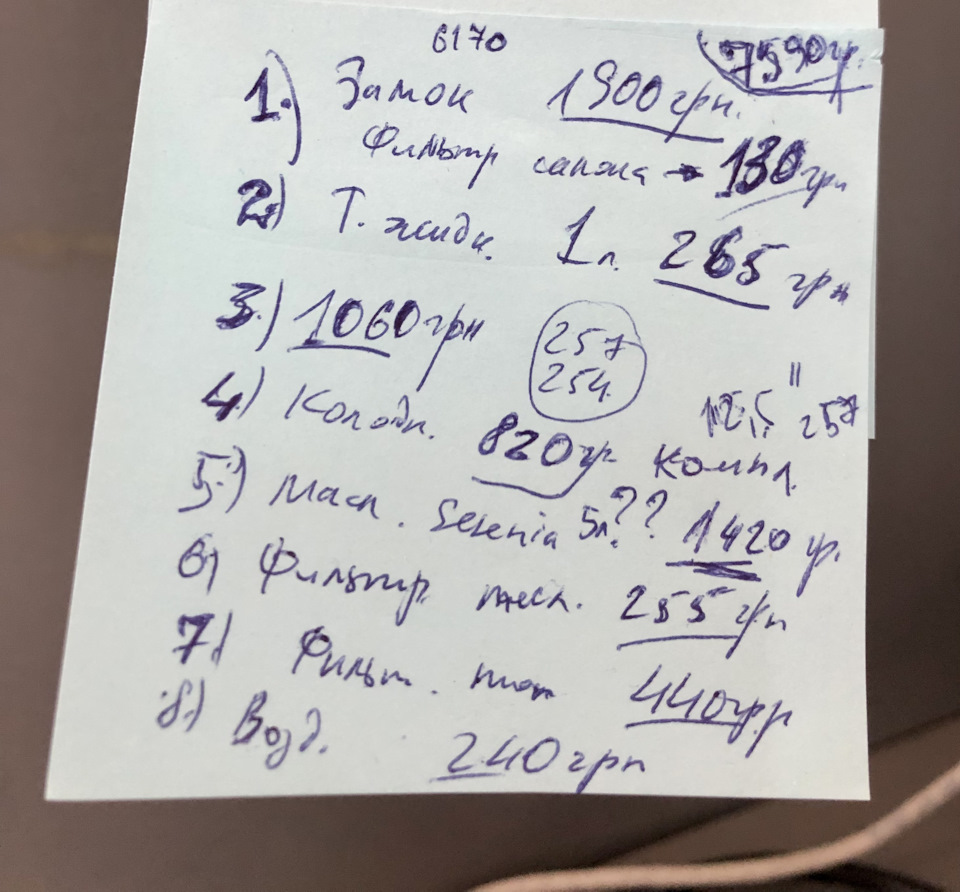 6170
7590гр.
1.) Замок 1900грн.
Фильтр салона → 130грн
2.) Т. жидк. 1л. 265грн
3.) 1060грн
257
254.
4.) Колодк. 820гр. компл.
12,5" 257
5.) Масл. Selenia 5л.?? 1420гр.
6) Фильтр. масл. 255грн
7.) Фильт. топ 440гр
8.) Возд. 240грн